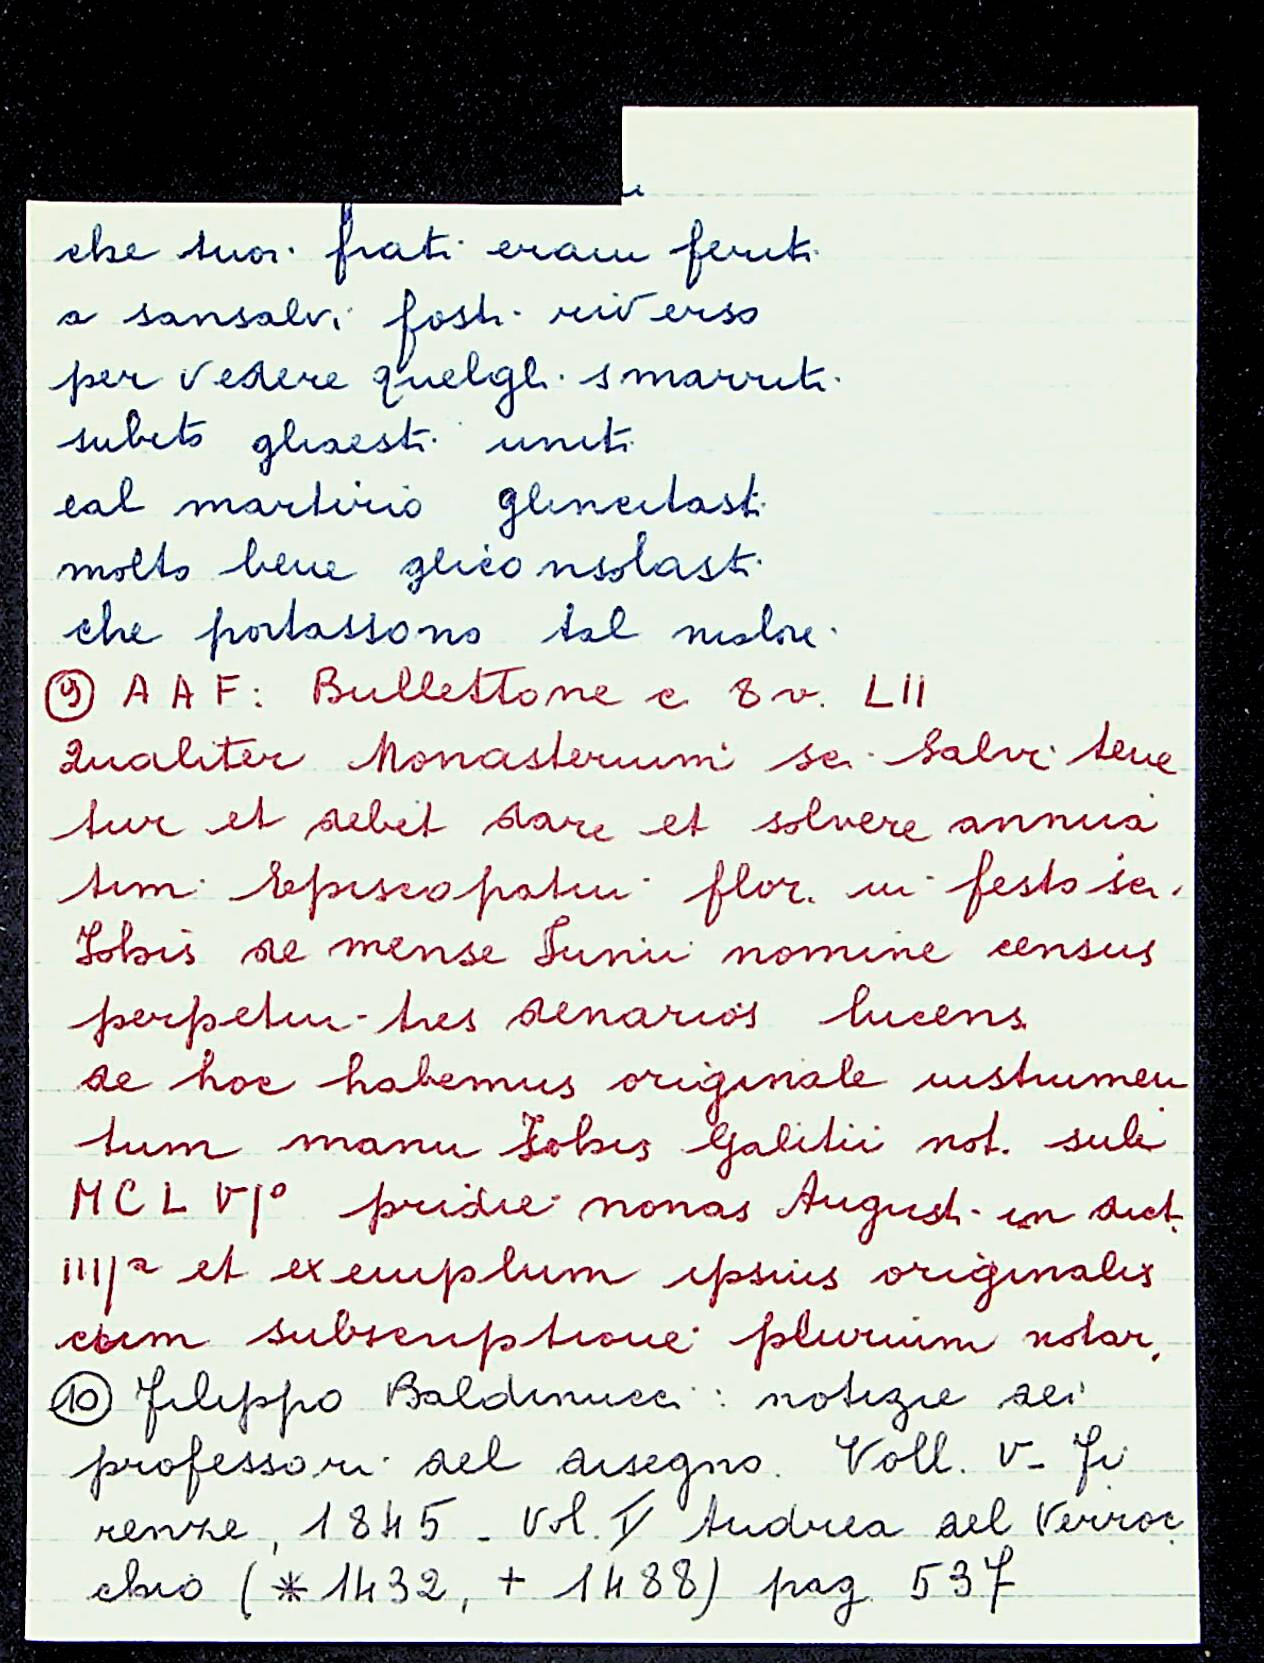 che tuoi frati eran feriti
a sansalvi fosti riverso
per vedere quelgli smarriti
subito gliaesti uniti
eal martirio glincitasti
molto bene gliconsolasti
che portassono tal malore.
⑨ A A F: Bullettone c. 8 v. LII
Qualiter Monasterium sci. Salvi tene
tur et debit dare et solvere annua
tim Episcopatui flor. in festo sci.
Iohis de mense Iunii nomine census
perpetui tres denarios lucens.
de hoc habemus originale instrumen
tum manu Iohis Galitii not. sub
MCLVIº pridie nonas August. in dict.
IIIIª et exemplum ipsius originalis
cum subscriptione plurium notar.
⑩ Filippo Baldinucci: notizie dei
professori del disegno. Voll. V - Fi
renze, 1845 - Vol. I Andrea del Verroc
chio (* 1432, + 1488) pag. 537